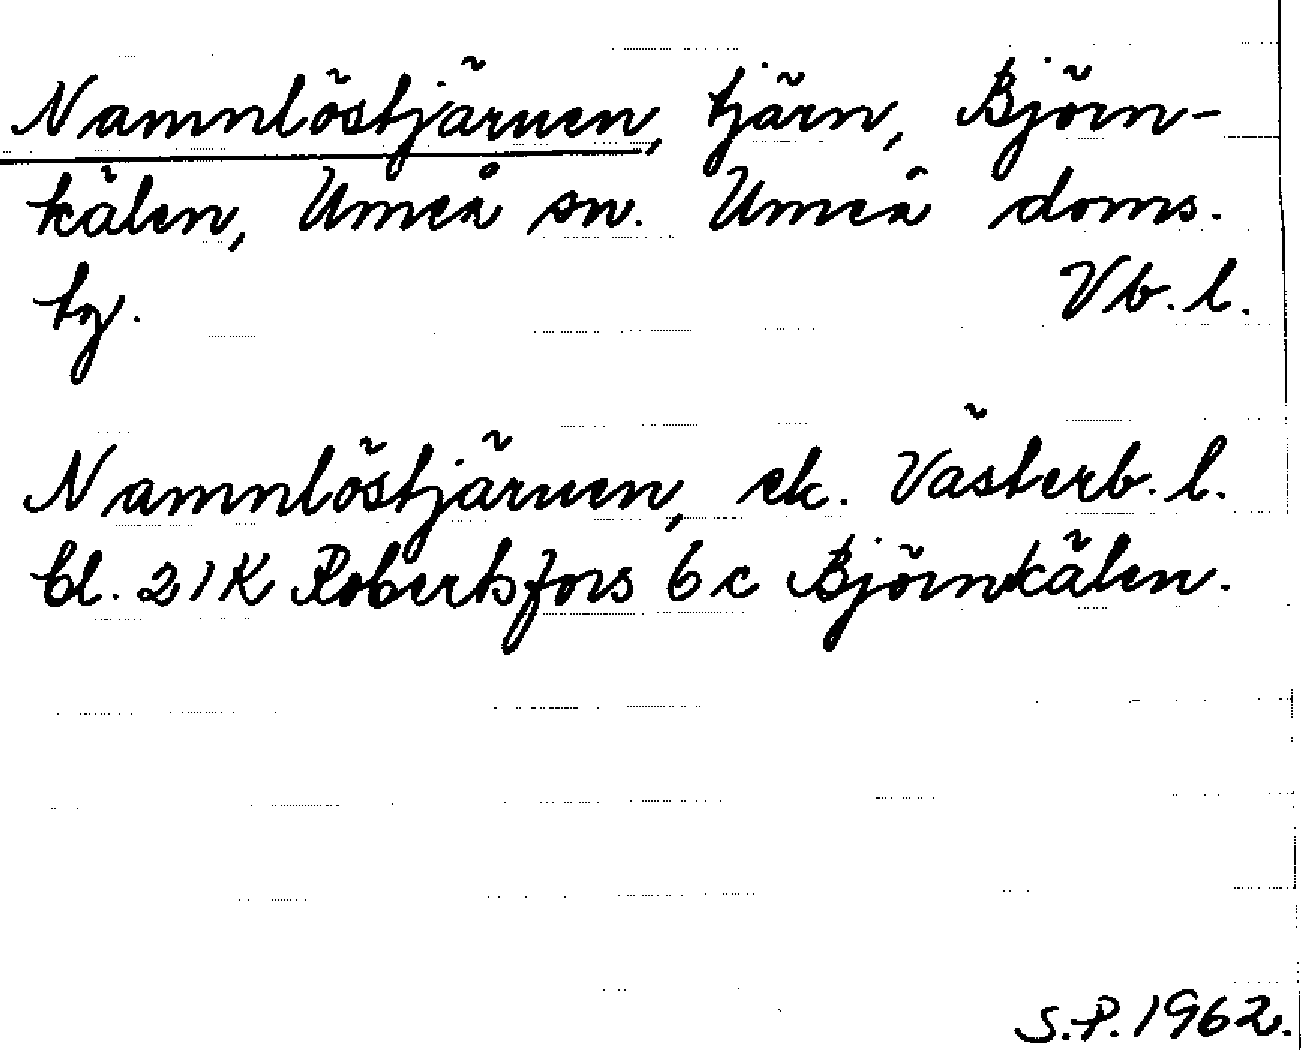 Namnlöstjärnen, tjärn, Björn-
kälen, Umeå sn. Umeå doms.
tg. Vb. l.
Namnlöstjärnen, ek. Västerb. l.
bl. 21K Robertsfors 6 c Björnkälen.
S.P. 1962.